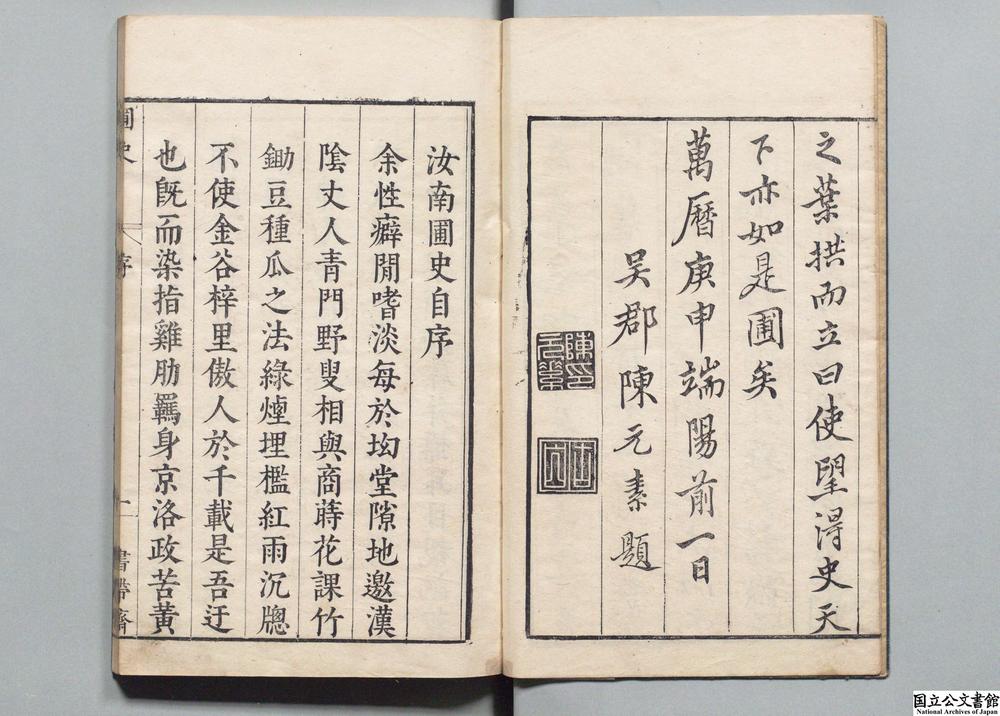 之葉拱而立曰使朢淂史天
下亦如是圃矣
萬曆庚申端陽前一日
吴郡陳元素題
汝南圃史自序
余性癖閒嗜淡每於坳堂隙地邀漢
陰丈人青門野叟相與商蒔花課竹
鋤豆種瓜之法綠煙埋檻紅雨沉牕
不使金谷梓里傲人於千載是吾迂
也旣而染指雞肋羈身京洛政苦黃
圃史
序
一
書帶齋
国立公文書館
National Archives of Japan